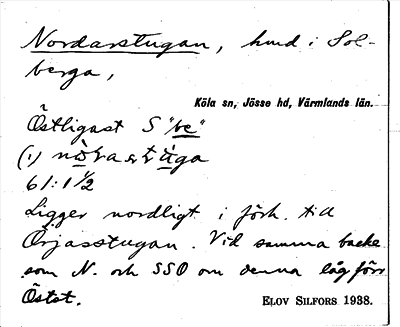 Nordarstugan, hmd i Sol-
berga,
Köla sn, Jösse hd, Värmlands län.
Östligast S "be"
(1) nòra stúga
61:1½
Ligger nordligt i förh. till
Örjasstugan. Vid samma backe
som N. och SSO om denna låg förr
Östst.
ELOV SILFORS 1938.